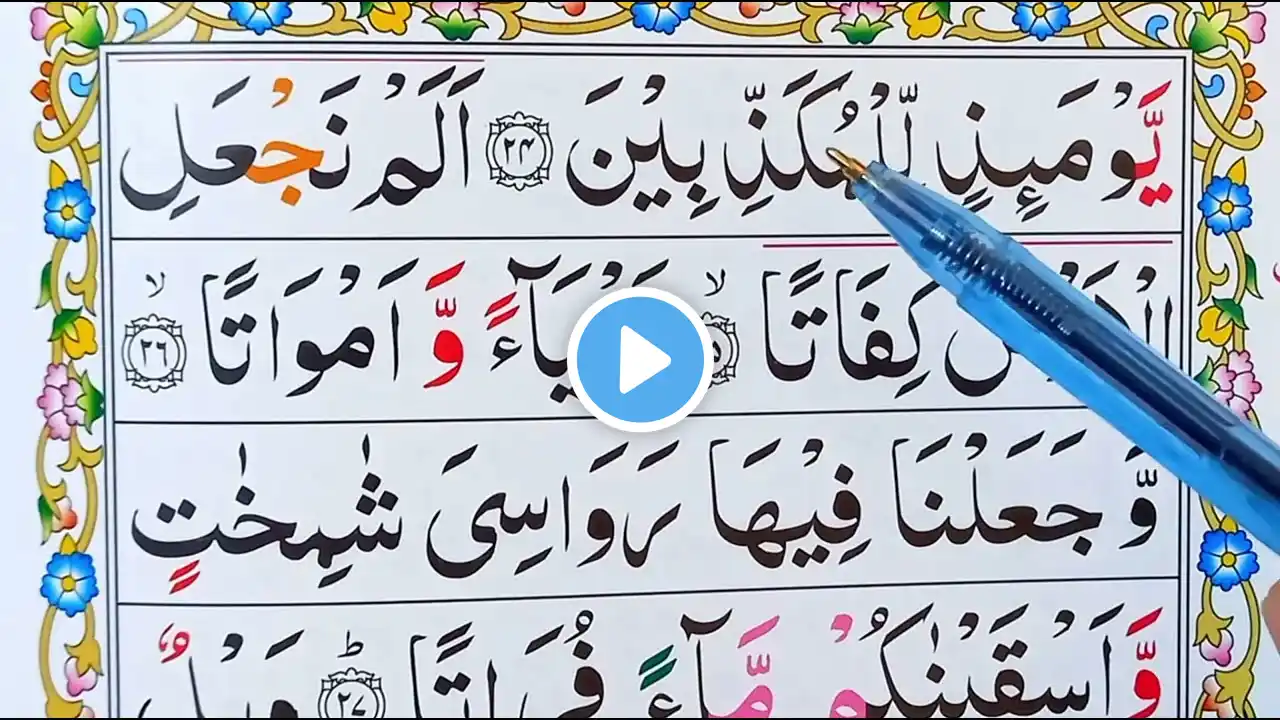 يَّوْمَئِذٍ لِّلْمُكَذِّبِيْنَ ۲۴ اَلَمْ نَجْعَلِ
كِفَاتًا ۙ وَّ اَمْوَاتًا ۙ ۲۶
وَّ جَعَلْنَا فِيْهَا رَوَاسِیَ شٰمِخٰتٍ
وَّ اَسْقَيْنٰكُمْ مَّآءً فُرَاتًا ؕ ۲۷ وَيْلٌ